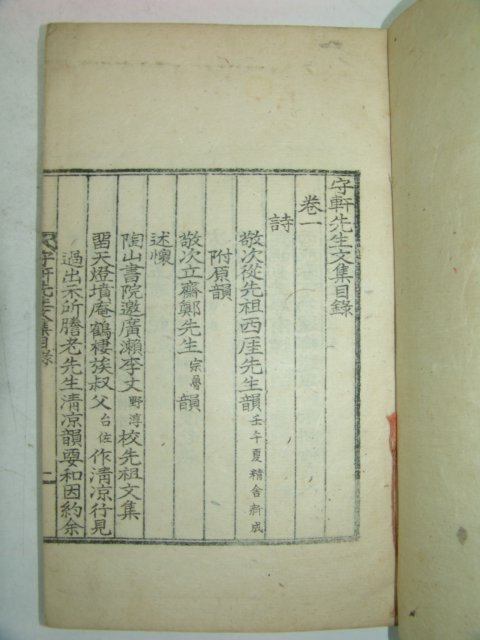 守軒先生文集目錄
卷一
詩
敬次從先祖西厓先生韻壬午夏精舍新成
附原韻
敬次立齋鄭先生宗魯韻
述懷
陶山書院邀廣瀨李丈野淳校先祖文集
留天燈墳庵鶴棲族叔父台佐作清凉行見
過出示所賡老先生清凉韻要和因約余
守軒先生文集目錄 一